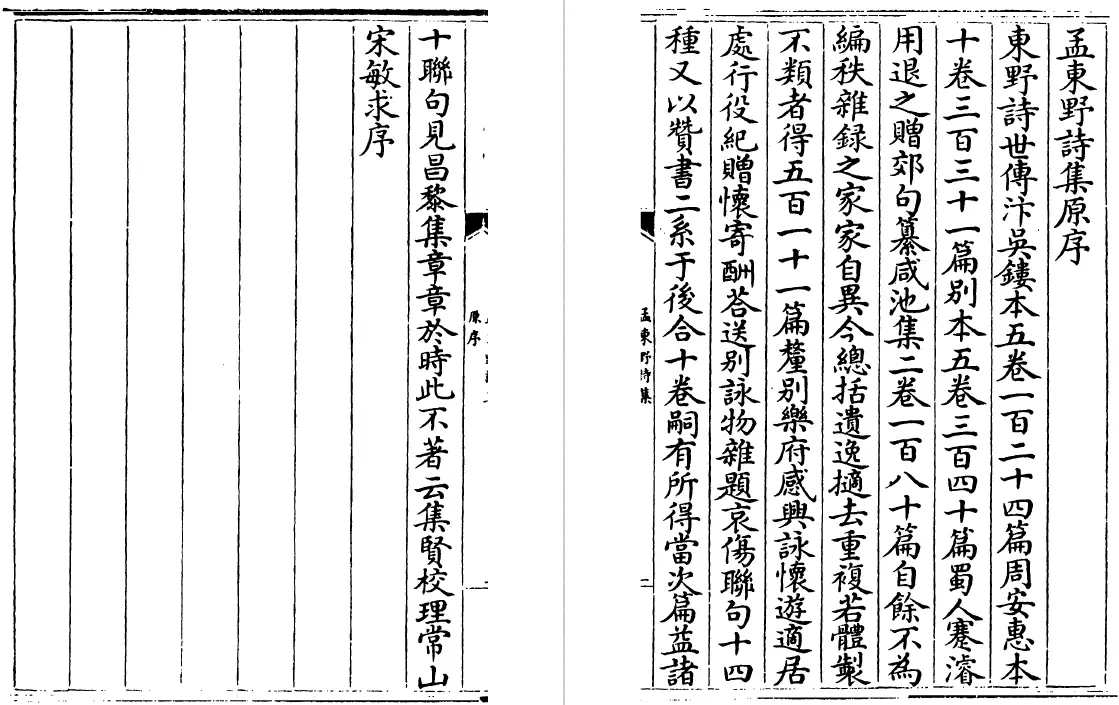 孟東野詩集原序
東野詩世傳汴吳鏤本五卷一百二十四篇周安惠本
十卷三百三十一篇別本五卷三百四十篇蜀人蹇濬
用退之贈郊句纂咸池集二卷一百八十篇自餘不為
編秩雜録之家家自異今總括遺逸擿去重複若體製
不類者得五百一十一篇釐別樂府感興詠懷遊適居
處行役紀贈懷寄酬荅送別詠物雜題哀傷聯句十四
種又以贊書二系于後合十卷嗣有所得當次篇益諸
孟東野詩集
二
原序
十聯句見昌黎集章章於時此不著云集賢校理常山
宋敏求序